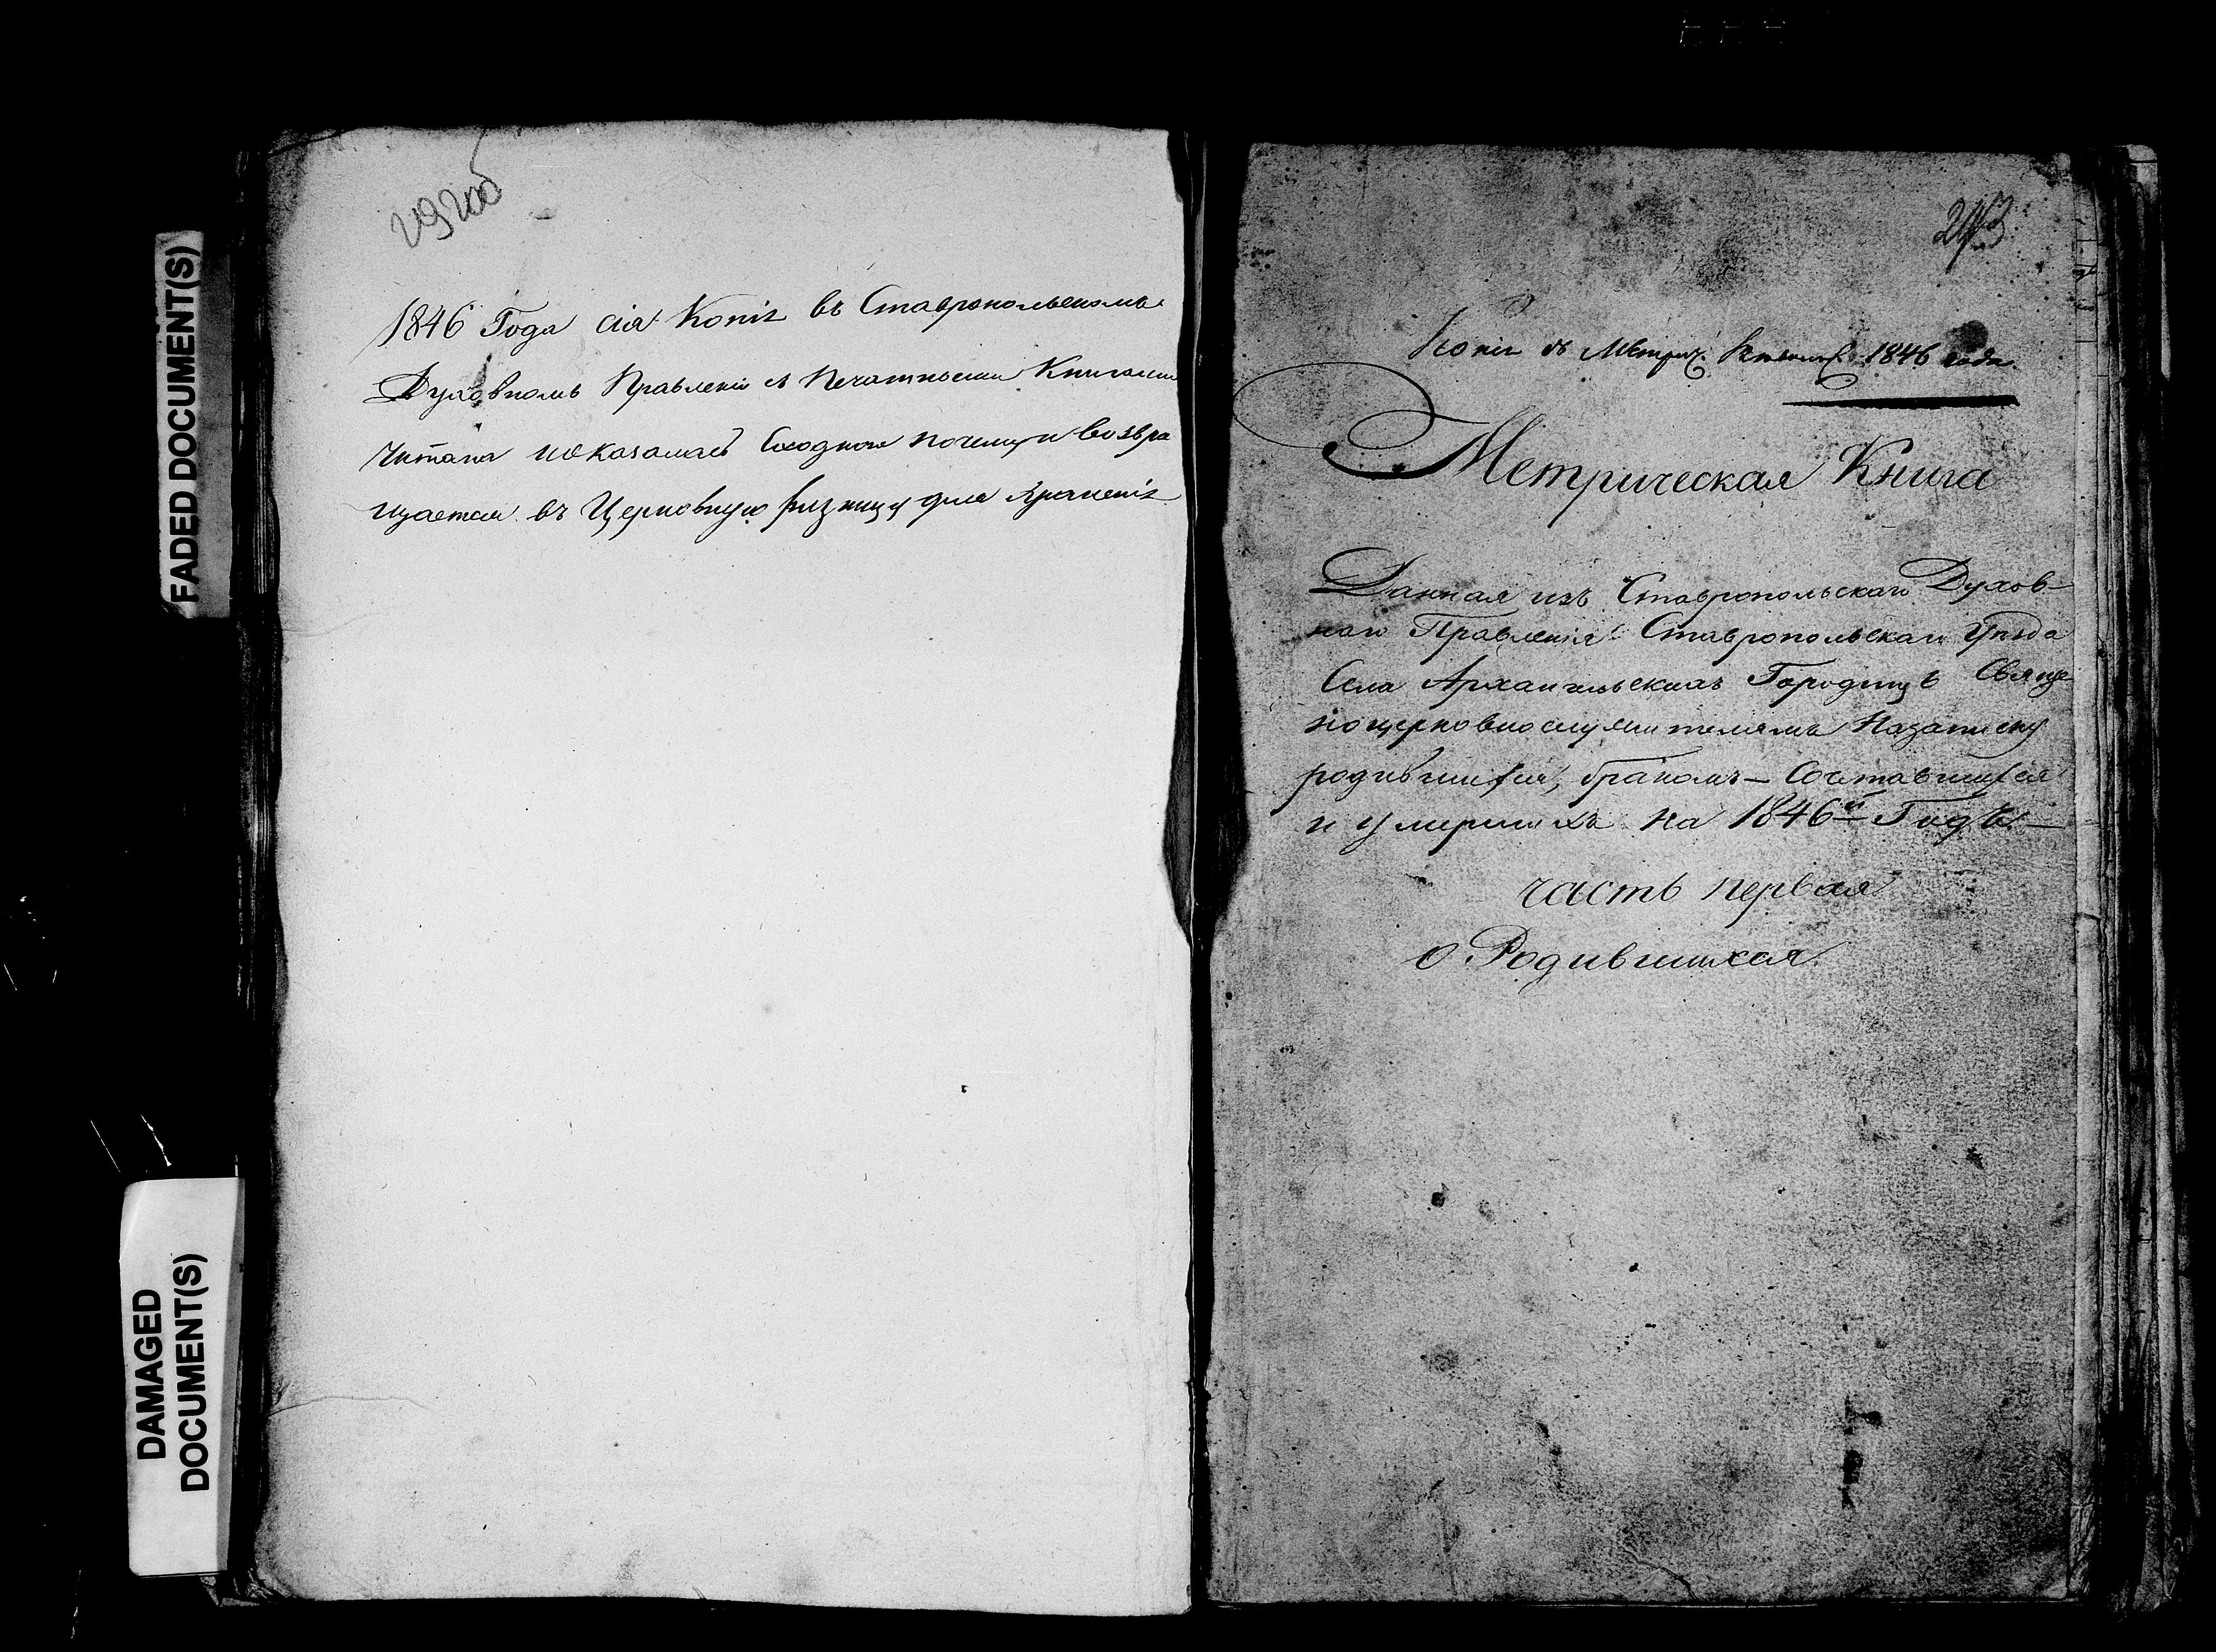 1846 Года сія Копія въ Ставропольскомъ
Духовномъ Правленіи съ Печатными Книгами
читана и оказалась сходною почему и возвра
щается въ Церковную ризницу для храненія
FADED DOCUMENT(S)
DAMAGED
DOCUMENT(S)
Копія съ Метрич. 1846 года.
Метрическая Книга
Данная изъ Ставропольскаго Духов-
наго Правленія Ставропольскаго Уѣзда
Села Архангельскихъ Городищъ Свяще
ноцерковнослужителямъ Назаписку
родившихся, бракомъ — Сочетавшихся
и умершихъ на 1846й Годъ —
часть первая
О Родившихся